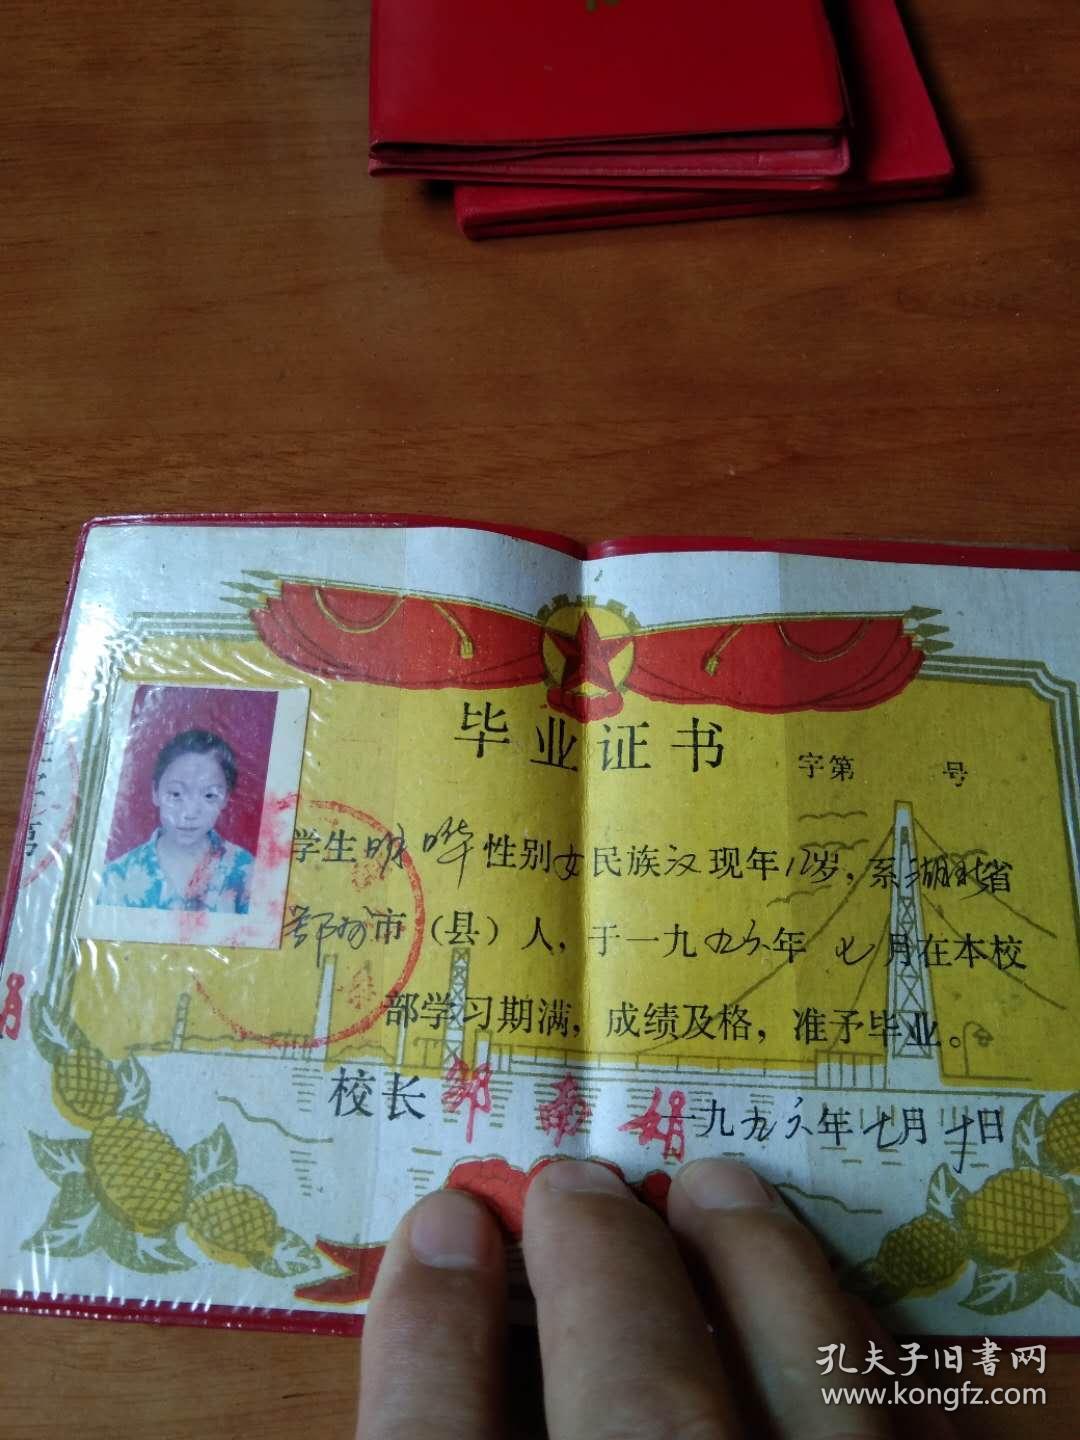 毕业证书
字第 号
学生 晔 性别女民族汉现年12岁，系湖北省
鄂州市（县）人，于一九九六年 七月在本校
部学习期满，成绩及格，准予毕业。
校长 邹南娟 一九九六年七月十日
孔夫子旧書网
www.kongfz.com